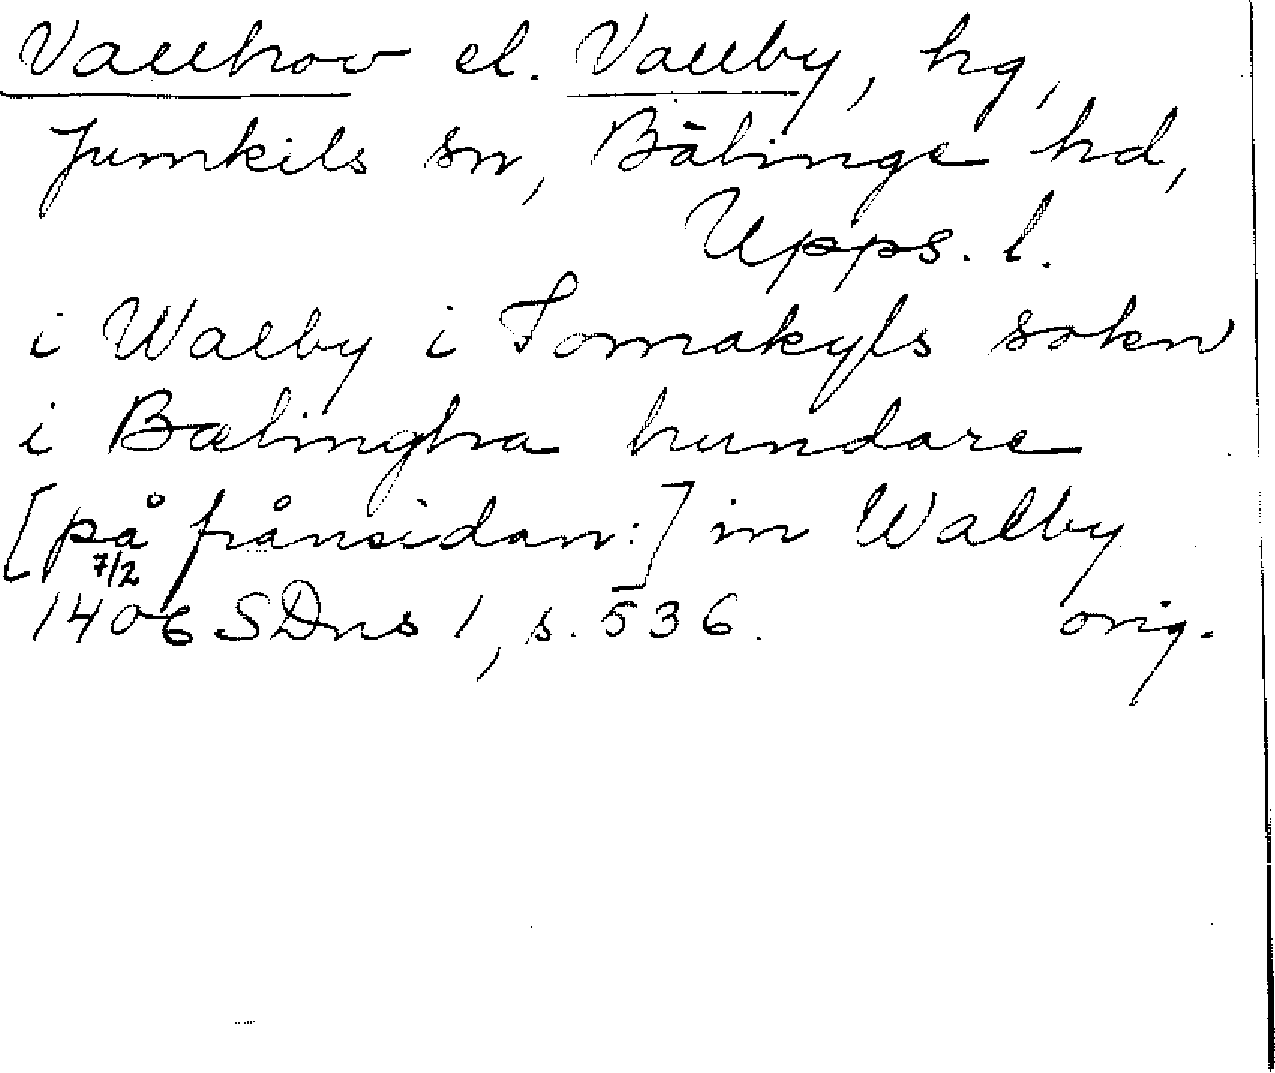 Vallhov el. Vallby, hg,
Jumkils sn, Bälinge hd,
Upps. l.
i Walby i Jomakyls sokn
i Bælingha hundare
[på frånsidan:] in Walby
7/2
1406 SDns 1, s. 536. orig.